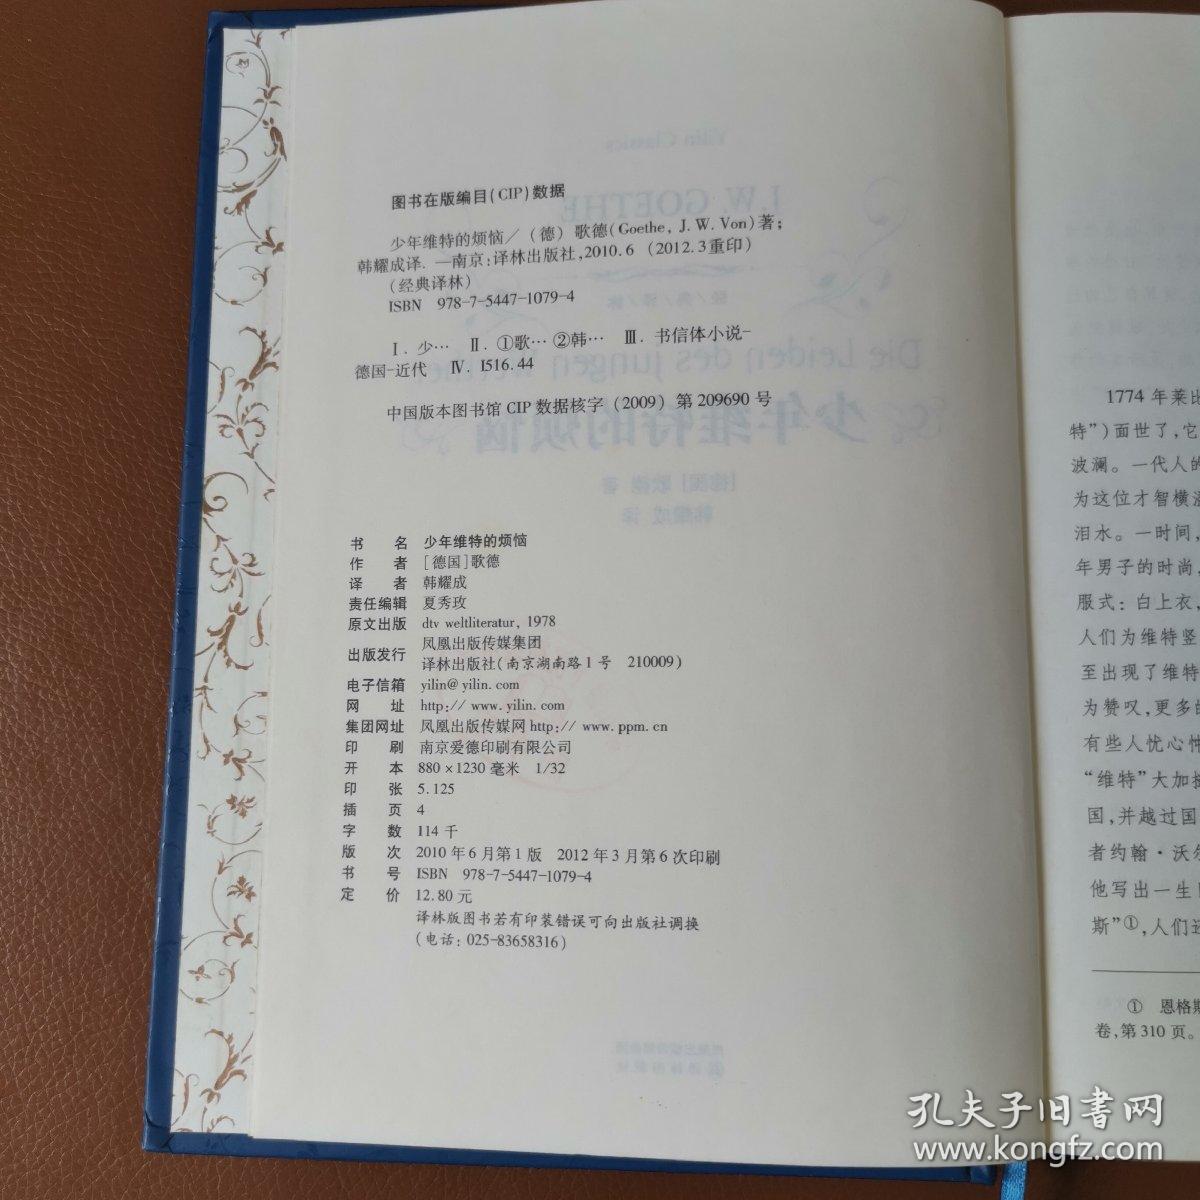 图书在版编目(CIP)数据
少年维特的烦恼／（德）歌德(Goethe, J. W. Von)著；
韩耀成译．—南京：译林出版社，2010.6（2012.3重印）
(经典译林)
ISBN 978-7-5447-1079-4
Ⅰ．少… Ⅱ．①歌…②韩… Ⅲ．书信体小说-
德国-近代 Ⅳ．I516.44
中国版本图书馆 CIP 数据核字（2009）第 209690 号
书 名 少年维特的烦恼
作 者 [德国]歌德
译 者 韩耀成
责任编辑 夏秀玫
原文出版 dtv weltliteratur, 1978
出版发行 凤凰出版传媒集团
译林出版社(南京湖南路1号 210009)
电子信箱 yilin@yilin.com
网 址 http://www.yilin.com
集团网址 凤凰出版传媒网http://www.ppm.cn
印 刷 南京爱德印刷有限公司
开 本 880×1230毫米 1/32
印 张 5.125
插 页 4
字 数 114千
版 次 2010年6月第1版 2012年3月第6次印刷
书 号 ISBN 978-7-5447-1079-4
定 价 12.80元
译林版图书若有印装错误可向出版社调换
(电话：025-83658316)
1774年莱比
特”)面世了，它
波澜。一代人的
为这位才智横溢
泪水。一时间，
年男子的时尚，
服式：白上衣，
人们为维特竖
至出现了维特
为赞叹，更多的
有些人忧心忡
“维特”大加挞
国，并越过国
者约翰·沃尔
他写出一生
斯”①，人们还
① 恩格斯
卷，第310页。
孔夫子旧书网
www.kongfz.com